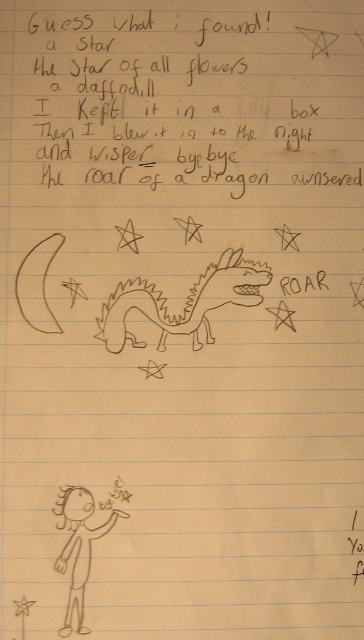 Guess what i found!
a star
the star of all flowers
a daffodill.
I Kept it in a box
Then I blew it in to the night
and wisper byebye
the roar of a dragon awnsered
ROAR
bye